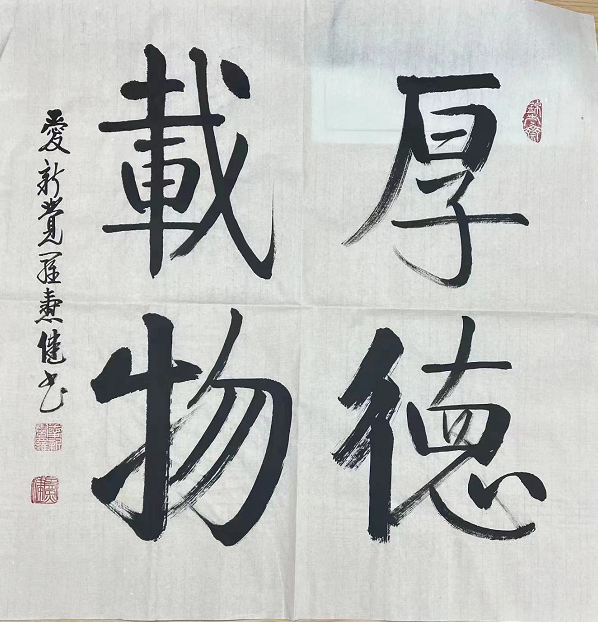 厚德
載物
愛新覺羅 健书